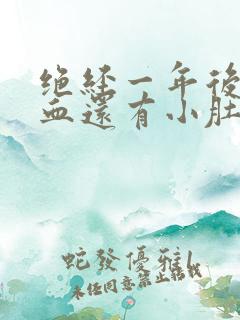 绝经一年後
血還有小肚
蛇發優雅
未経同意禁止轉載